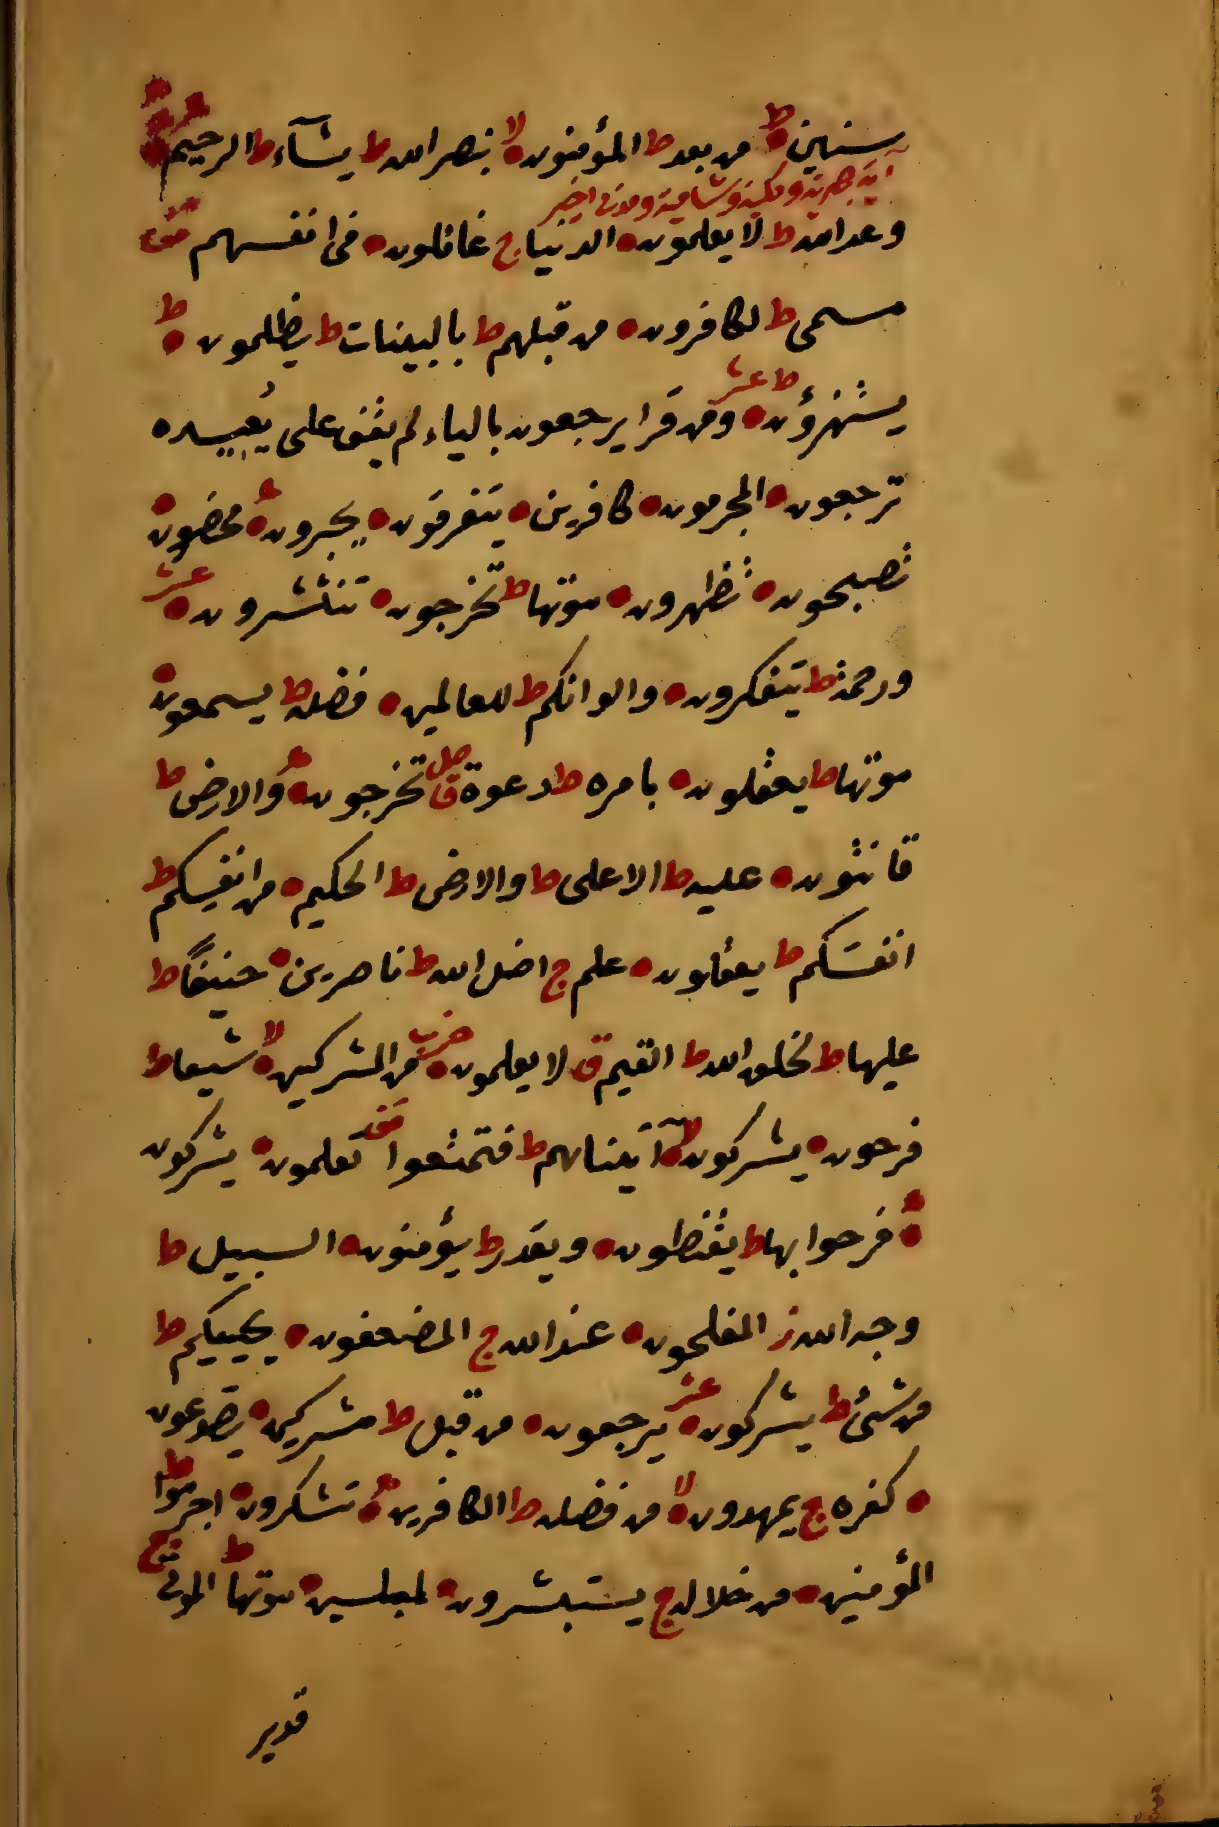 سنين ط من بعد ط المؤمنون لا بنصر الله ط يشآء ط الرحيم
وعد الله ط لا يعلمون الدنيا ج غافلون فى انفسهم
مسمى ط لكافرون من قبلهم ط بالبينات ط يظلمون ط
يستهزؤن ط عشر ومن قرا يرجعون بالياء لم يقف على يعيده
ترجعون المجرمون كافرين يتفرقون يحبرون محضرون
تصبحون تظهرون موتها ط تخرجون تنتشرون عشر
ورحمة ط يتفكرون والوانكم ط للعالمين فضله ط يسمعون
موتها ط يعقلون بامره ط دعوة ق تخرجون والارض ط
قانتون عليه ط الاعلى ط والارض ط الحكيم من انفسكم ط
انفسكم ط يعقلون علم ج اضل الله ط ناصرين حنيفًا ط
عليها ط لخلق الله ط القيم ق لا يعلمون من المشركين لا شيعا ط
فرحون يشركون لا آتيناهم ط فتمتعوا تعلمون يشركون
فرحوا بها ط يقنطون ويقدر ط يؤمنون السبيل ط
وجه الله ز المفلحون عند الله ج المضعفون يحييكم ط
من شئ ط يشركون عشر يرجعون من قبل ط مشركين يصدعون
كفره ج يمهدون لا من فضله ط الكافرين تشكرون اجرموا ط
المؤمنين من خلاله ج يستبشرون لمبلسين موتها ط الموتى ج
قدير